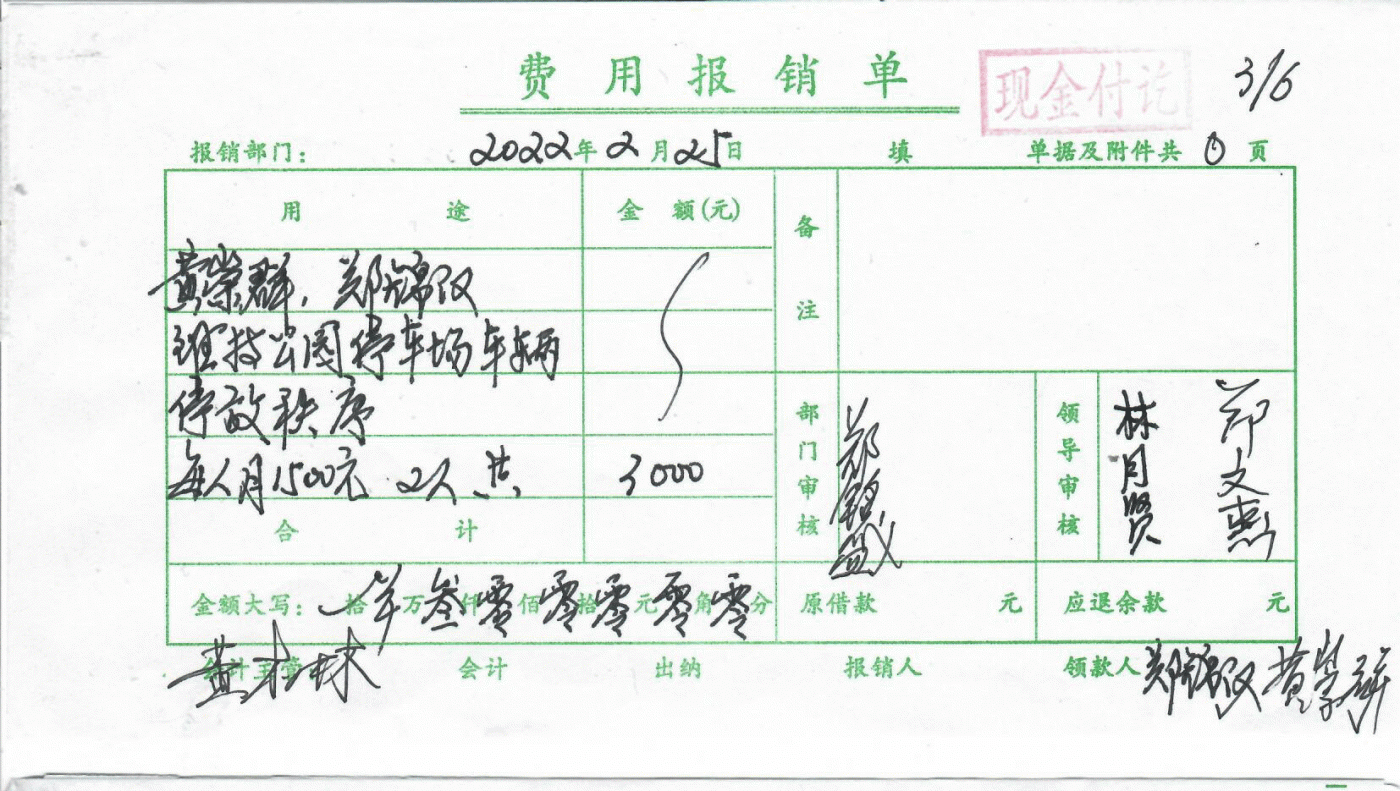 费用报销单
现金付讫
3/6
报销部门： 2022年2月25日 填 单据及附件共 0 页
用途 金额(元) 备注
黄崇群、郑锦汉
维持公园停车场车辆
停放秩序
每人月1500元 2人 共 3000
合计
部门审核
领导审核 林月贤
金额大写： 拾 万叁仟零佰零拾零元零角零分 原借款 元 应退余款 元
会计主管 会计 出纳 报销人 领款人 郑锦汉 黄崇群